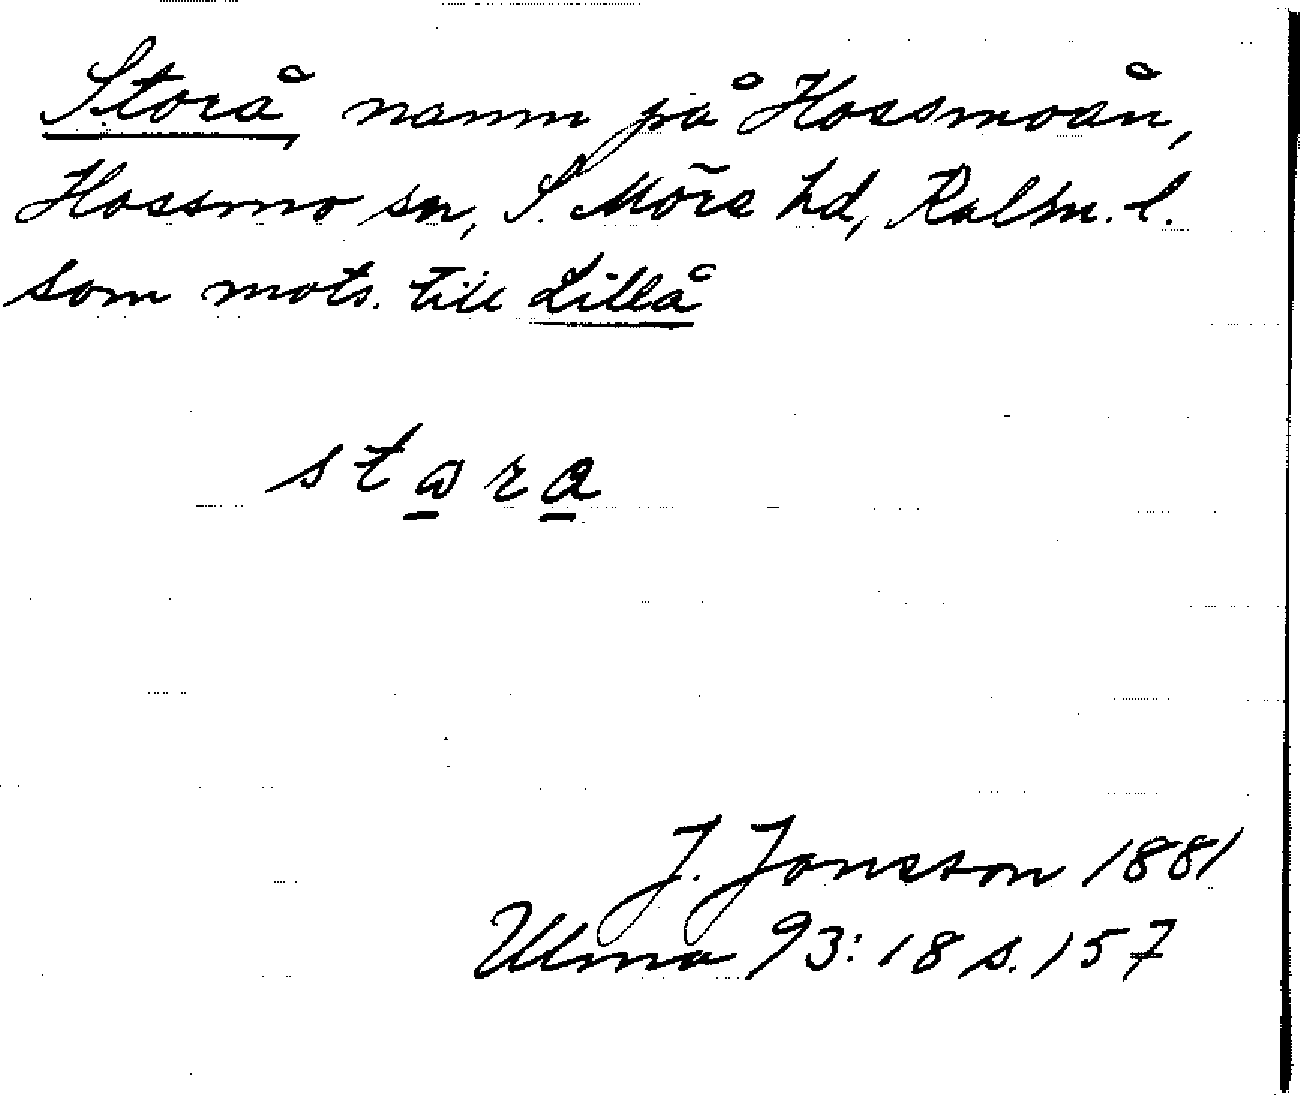 Storå, namn på Hossmoån,
Hossmo sn, S. Möre hd, Kalm. l.
som mots. till Lillå
stara
J. Jonsson 1881
Ulma 93:18 s. 157